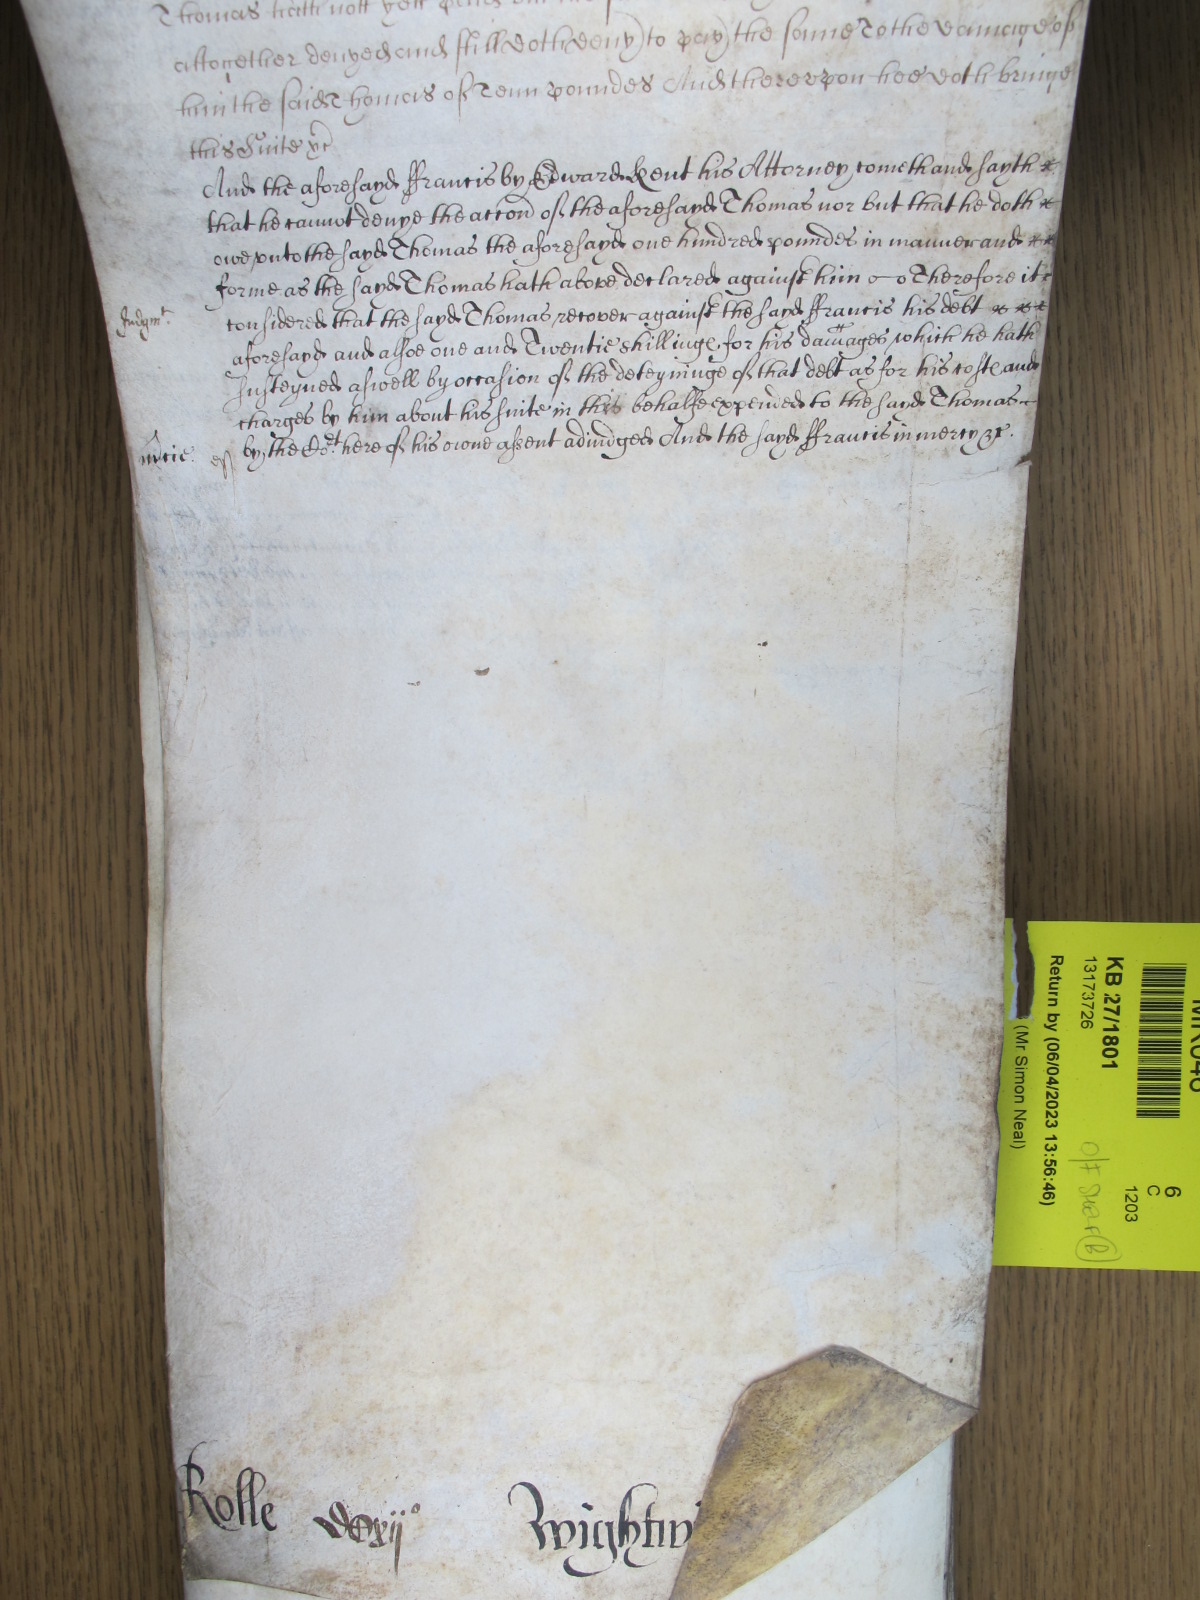 Thomas hath nott yett
altogether denyed and still doth deny to pay the same To the damage of
him the said Thomas of Tenn poundes And therevpon hee doth bringe
this Suite &c
And the aforesayd ffrancis by Edward Kent his Attorney comethand sayth
that he cannot denye the accon of the aforesayd Thomas nor but that he doth
owe vnto the sayd Thomas the aforesayd one hundred poundes in manner and
forme as the sayd Thomas hath above declared against him Therefore it is
Iudgmt.
considered that the sayd Thomas recover against the sayd ffrancis his debt
aforesayd and alsoe one and Twentie shillinge for his damages which he hath
susteyned aswell by occasion of the deteyninge of that debt as for his coste and
charges by him about his suite in this behalfe expended to the sayd Thomas
mcie.
by the Cort here of his owne assent adiudged And the sayd ffrancis in mercy &c.
Rolle
Wightwi
MR046
KB 27/1801
13173726
Return by (06/04/2023 13:56:46)
(Mr Simon Neal)
6
C
1203